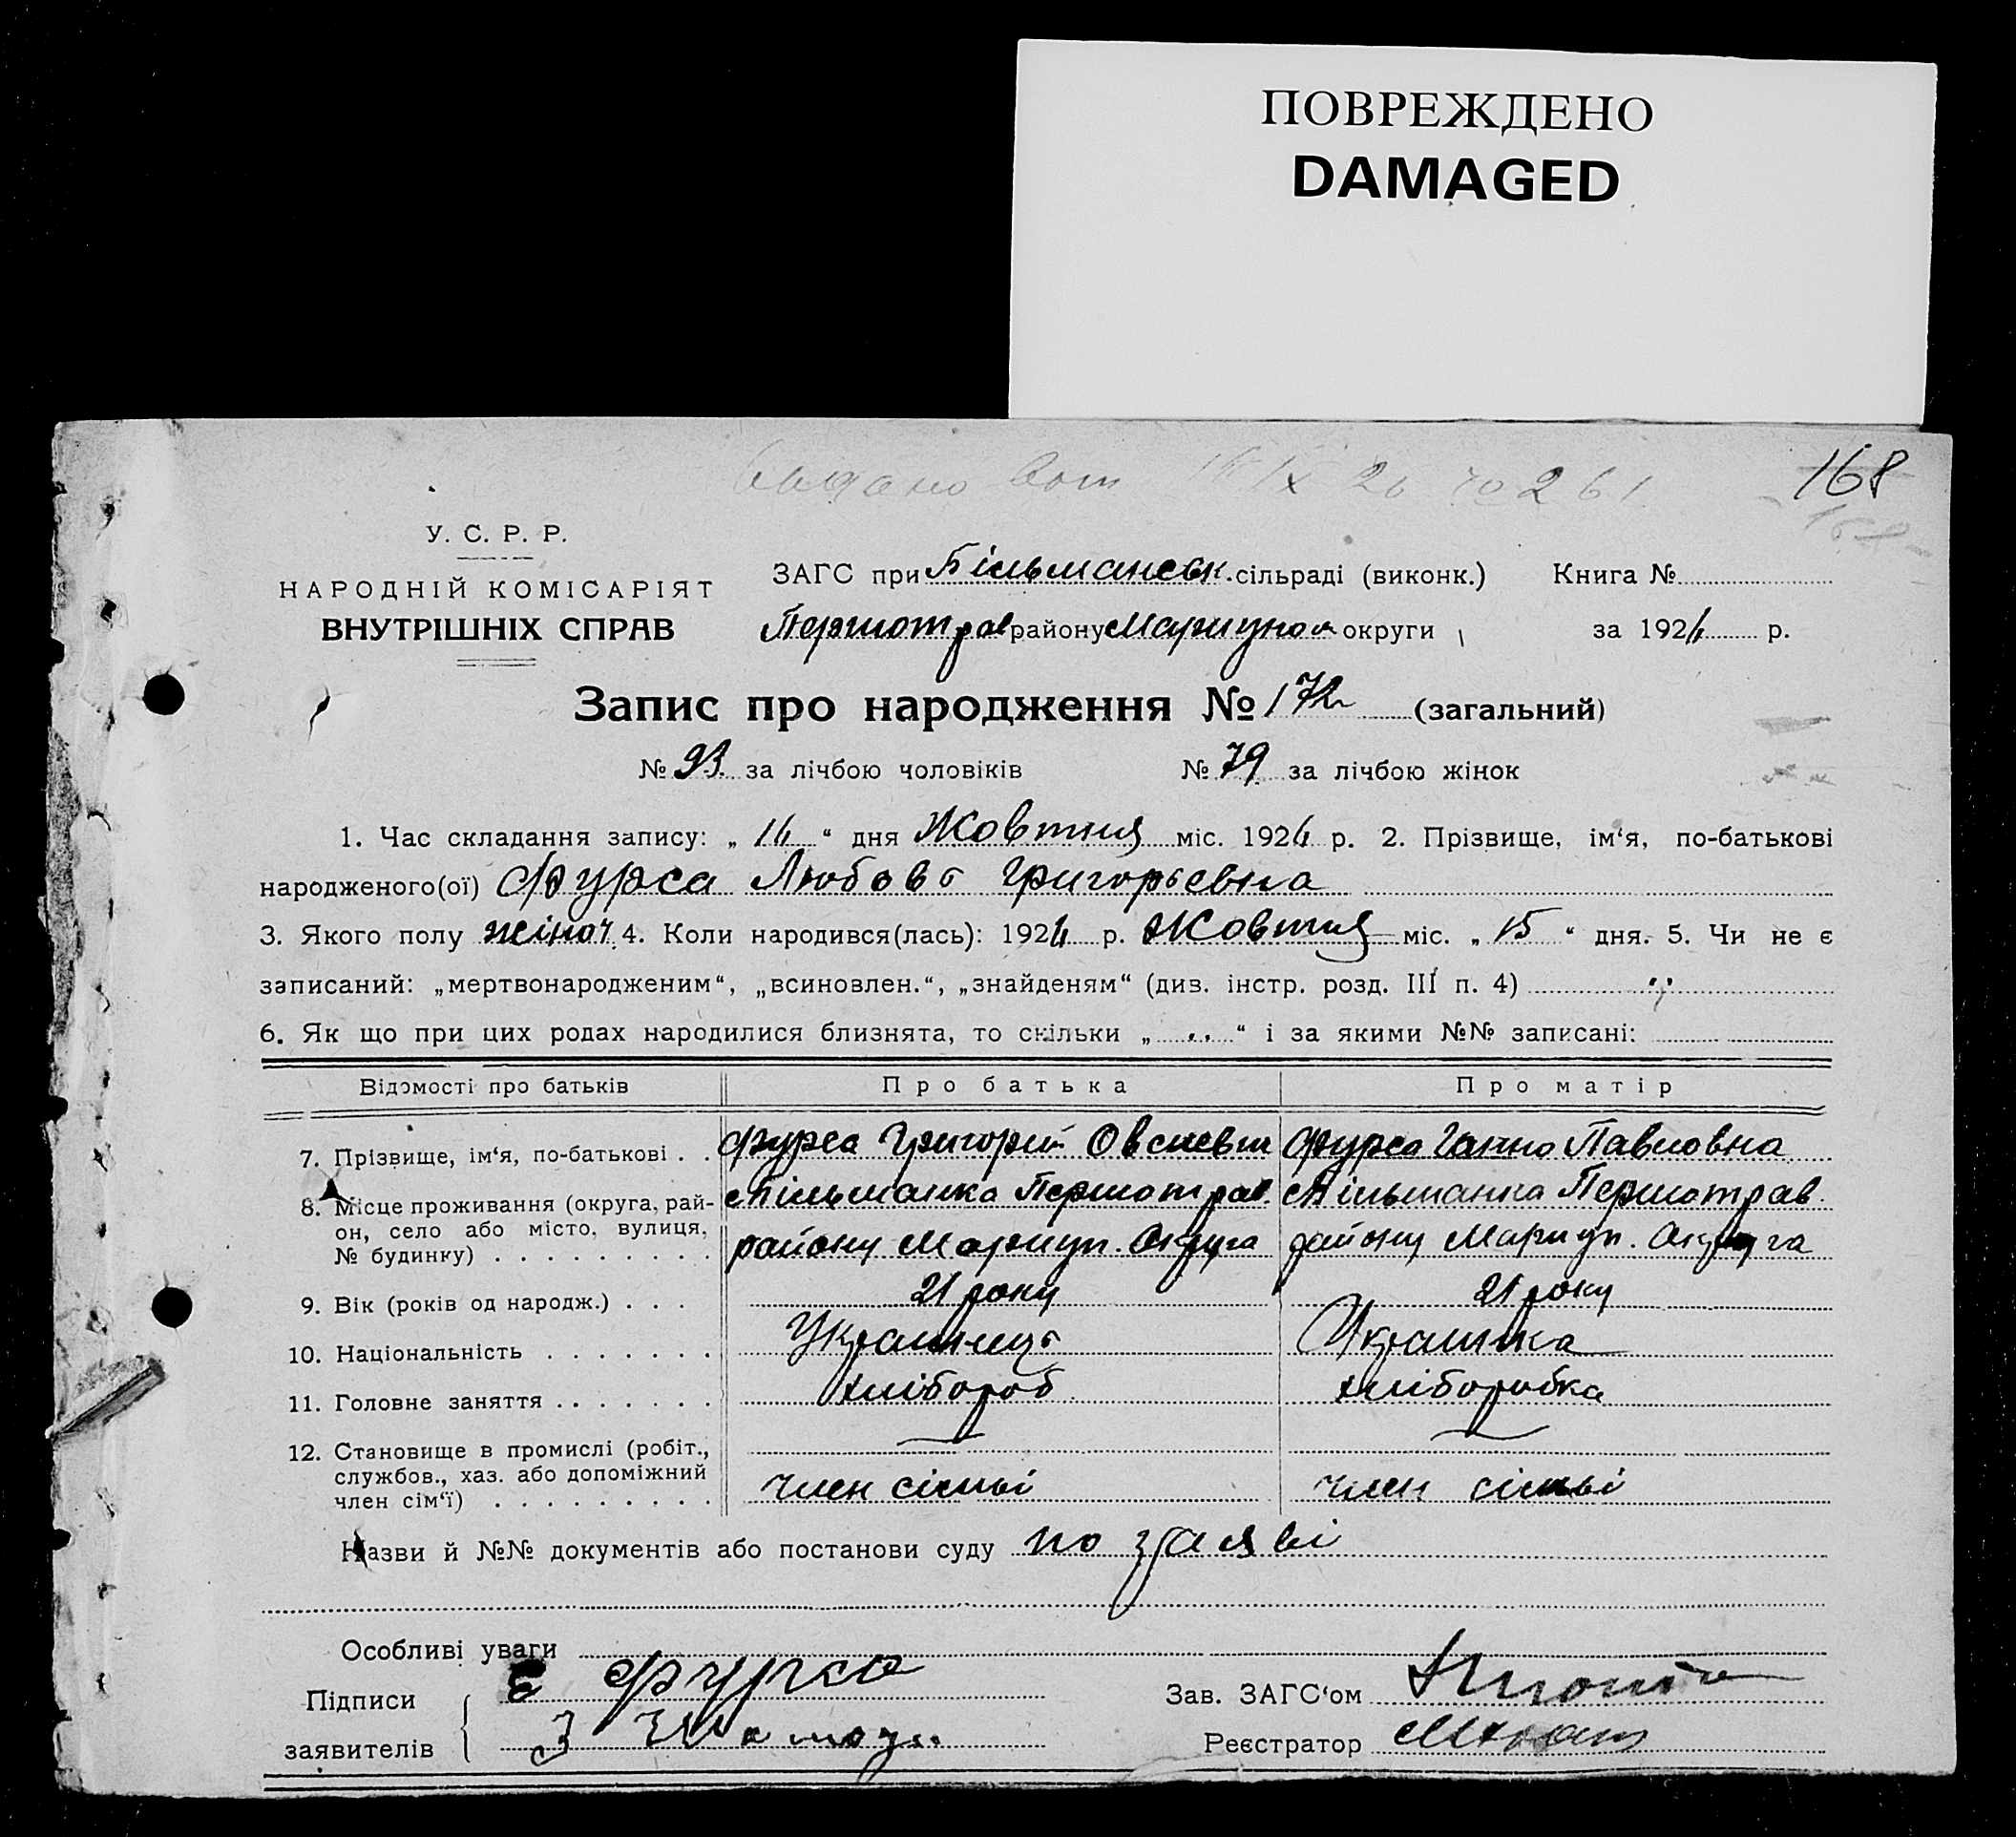 ПОВРЕЖДЕНО
DAMAGED
168
У. С. Р. Р.
НАРОДНІЙ КОМІСАРІЯТ
ВНУТРІШНІХ СПРАВ
ЗАГС при Більманськ. сільраді (виконк.) Книга №
Першотрав району Маріупол округи за 1926 р.
Запис про народження № 172 (загальний)
№ 93 за лічбою чоловіків № 79 за лічбою жінок
1. Час складання запису: „ 16 “ дня Жовтня міс. 1926 р. 2. Прізвище, ім‘я, по-батькові
народженого(ої) Фурса Любовь Григорьевна
3. Якого полу жіноч. 4. Коли народився(лась): 1926 р. Жовтня міс. „ 15 “ дня. 5. Чи не є
записаний: „мертвонародженим“, „всиновлен.“, „знайденям“ (див. інстр. розд. III п. 4)
6. Як що при цих родах народилися близнята, то скільки „ “ і за якими №№ записані:
Відомості про батьків Про батька Про матір
7. Прізвище, ім‘я, по-батькові . . Фурса Григорій Овсиевич Фурса Ганна Павловна
8. Місце проживання (округа, рай- Більманка Першотрав. Більманка Першотрав.
он, село або місто, вулиця,
№ будинку) . . . . . . . . . району Маріуп. Округа району Маріуп. Округа
9. Вік (років од народж.) . . . 21 року 21 року
10. Національність . . . . . . . Украинець Украинка
11. Головне заняття . . . . . . . хлібороб хліборобка
12. Становище в промислі (робіт.,
службов., хаз. або допоміжний
член сім‘ї) . . . . . . . . . член сімьі член сімьі
Назви й №№ документів або постанови суду по заяві
Особливі уваги
Підписи Фурса Зав. ЗАГС‘ом
заявителів Реєстратор